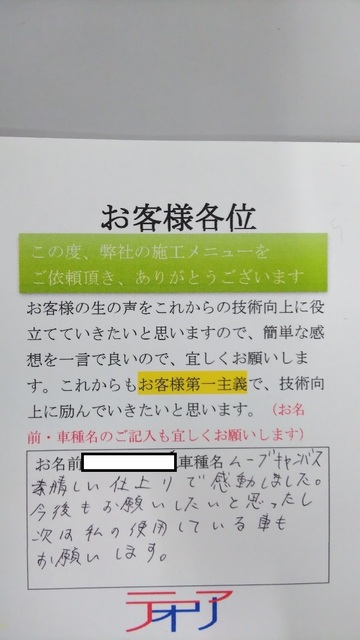 お客様各位
この度、弊社の施工メニューを
ご依頼頂き、ありがとうございます
お客様の生の声をこれからの技術向上に役
立てていきたいと思いますので、簡単な感
想を一言で良いので、宜しくお願いしま
す。これからもお客様第一主義で、技術向
上に励んでいきたいと思います。（お名
前・車種名のご記入も宜しくお願いします）
お名前 車種名 ムーブキャンバス
素晴しい仕上りで感動しました。
今後もお願いしたいと思ったし
次は私の使用している車も
お願いします。